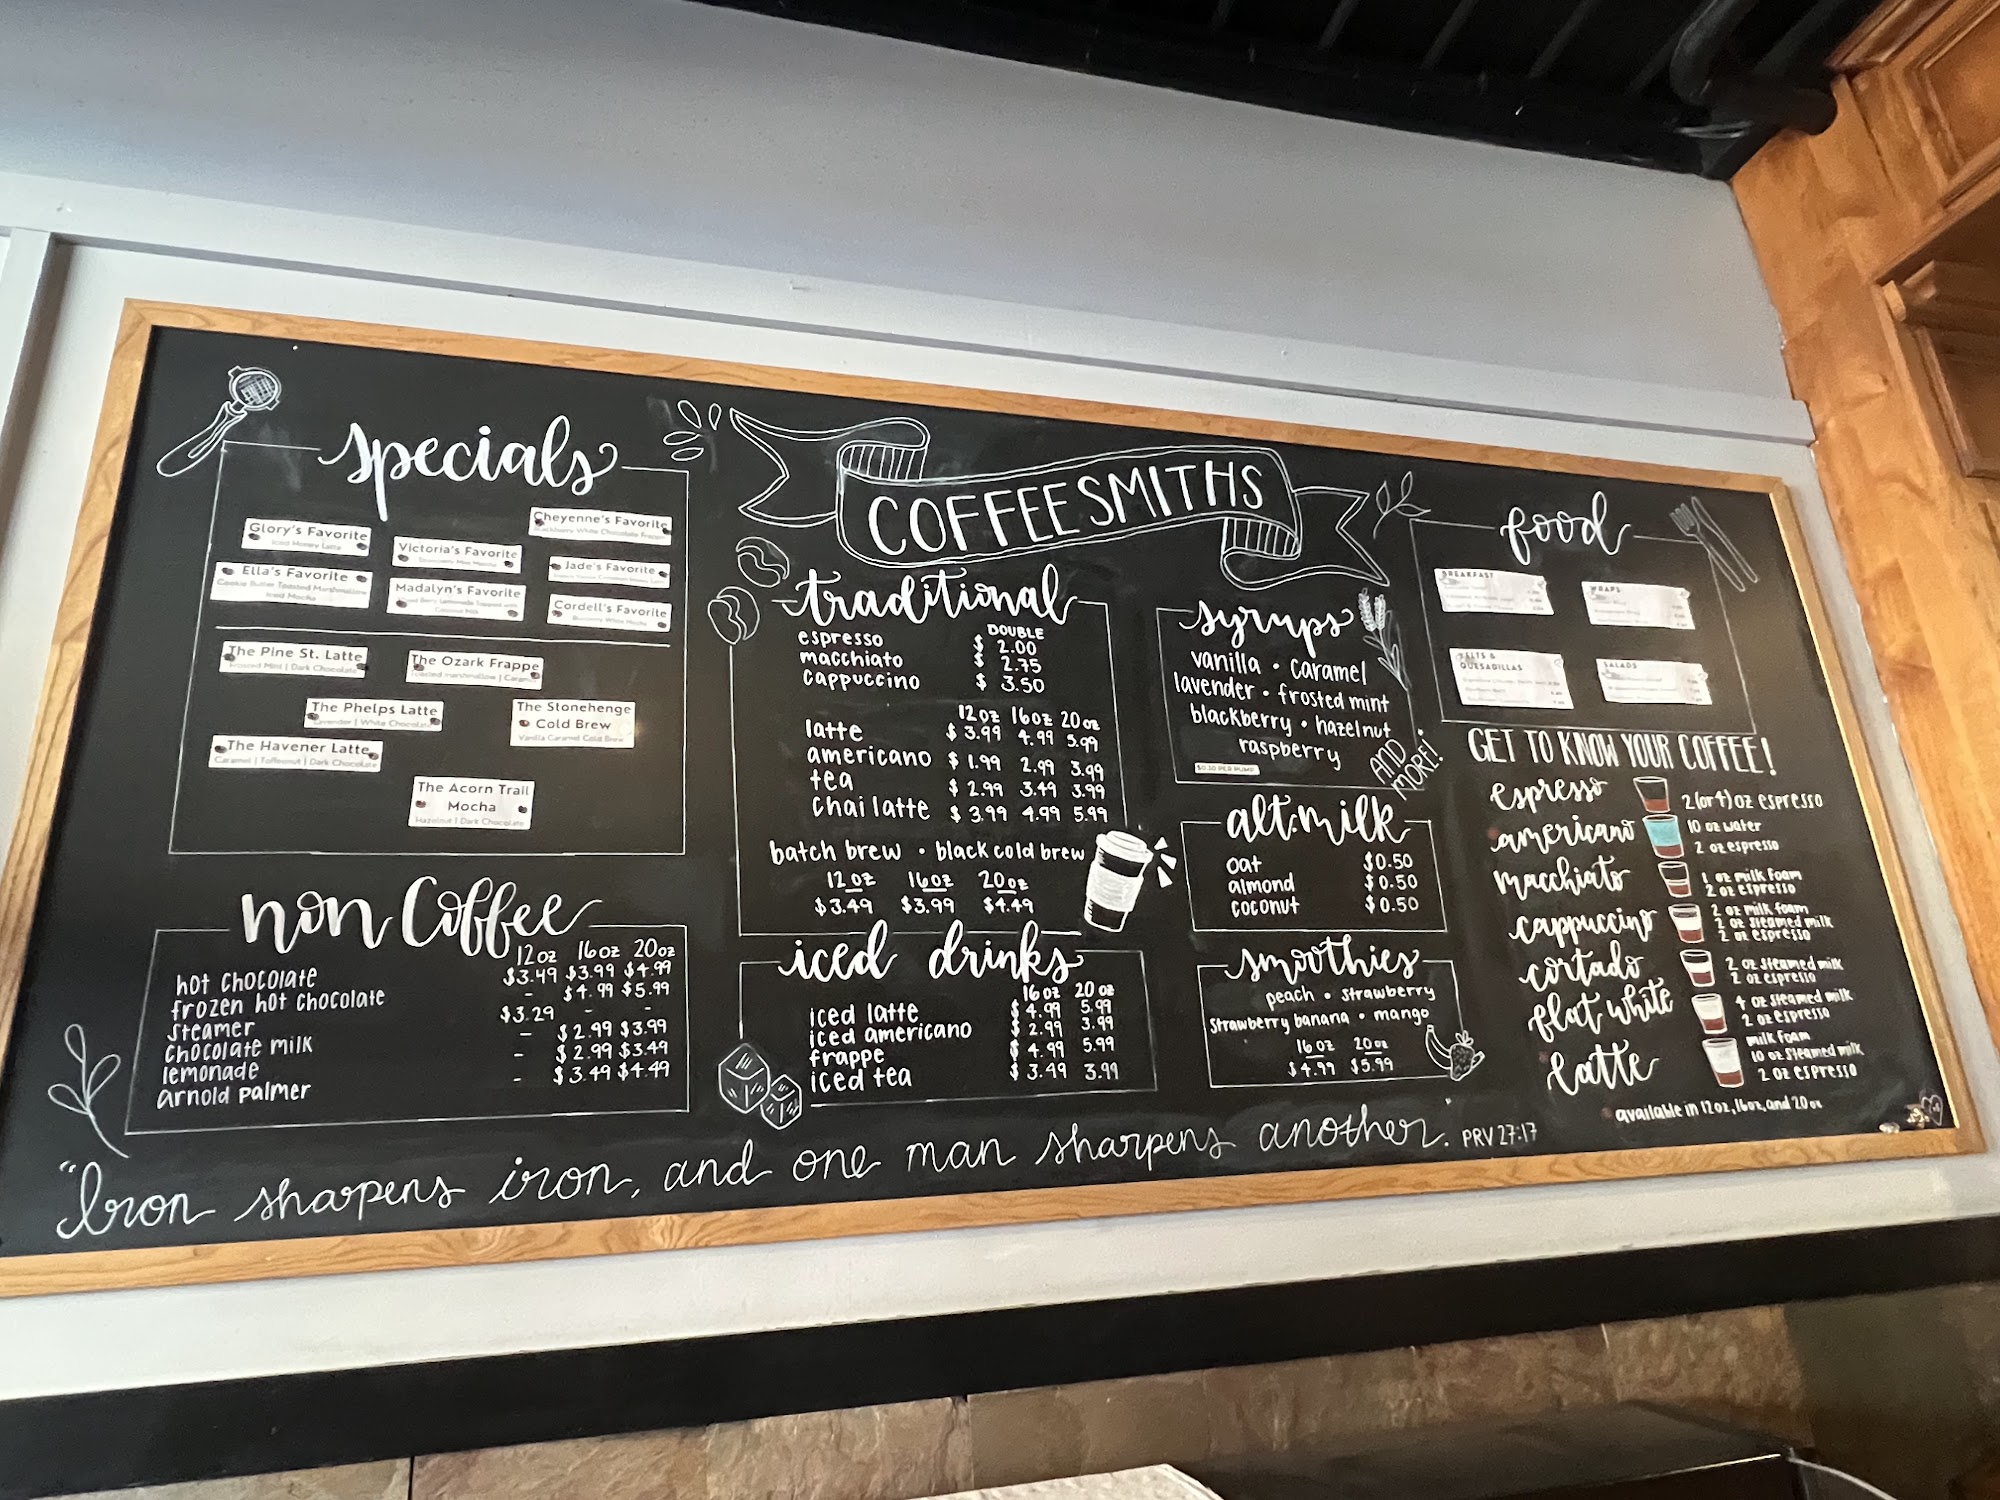 COFFEESMITHS
specials
Glory's Favorite
Iced Honey Latte
Cheyenne's Favorite
Blackberry White Chocolate Frappe
Victoria's Favorite
Ella's Favorite
Cookie Butter Toasted Marshmallow
Iced Mocha
Jade's Favorite
Madalyn's Favorite
Coconut Milk
Cordell's Favorite
Blueberry White Mocha
The Pine St. Latte
Frosted Mint | Dark Chocolate
The Ozark Frappe
Toasted Marshmallow | Caramel
The Phelps Latte
Lavender | White Chocolate
The Stonehenge
Cold Brew
Vanilla Caramel Cold Brew
The Havener Latte
Caramel | Toffeenut | Dark Chocolate
The Acorn Trail
Mocha
Hazelnut | Dark Chocolate
non Coffee
12oz 16oz 20oz
hot chocolate $3.49 $3.99 $4.99
frozen hot chocolate - $4.99 $5.99
steamer $3.29 - -
chocolate milk - $2.99 $3.99
lemonade - $2.99 $3.49
arnold palmer - $3.49 $4.49
traditional
DOUBLE
espresso $ 2.00
macchiato $ 2.75
cappuccino $ 3.50
12oz 16oz 20oz
latte $3.99 4.99 5.99
americano $1.99 2.99 3.99
tea $2.99 3.49 3.99
chai latte $3.99 4.99 5.99
batch brew • black cold brew
12oz 16oz 20oz
$3.49 $3.99 $4.49
iced drinks
16oz 20oz
iced latte $4.99 5.99
iced americano $2.99 3.99
frappe $4.99 5.99
iced tea $3.49 3.99
syrups
vanilla • caramel
lavender • frosted mint
blackberry • hazelnut
raspberry
AND
MORE!
$0.50 PER PUMP
alt. milk
oat $0.50
almond $0.50
coconut $0.50
smoothies
peach • strawberry
strawberry banana • mango
16oz 20oz
$4.99 $5.99
food
BREAKFAST
WRAPS
QUESADILLAS
SALADS
GET TO KNOW YOUR COFFEE!
espresso 2(or 4)oz espresso
americano 10 oz water
2 oz espresso
macchiato 1 oz milk foam
2 oz espresso
cappuccino 2 oz milk foam
2 oz steamed milk
2 oz espresso
cortado 2 oz steamed milk
2 oz espresso
flat white 4 oz steamed milk
2 oz espresso
latte milk foam
10 oz steamed milk
2 oz espresso
available in 12oz, 16oz, and 20oz
"Iron sharpens iron, and one man sharpens another." PRV 27:17